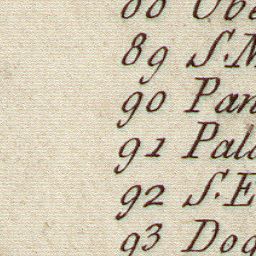 88
89 S. M
90 Pan
91 Pala
92 S. E
93 Dog